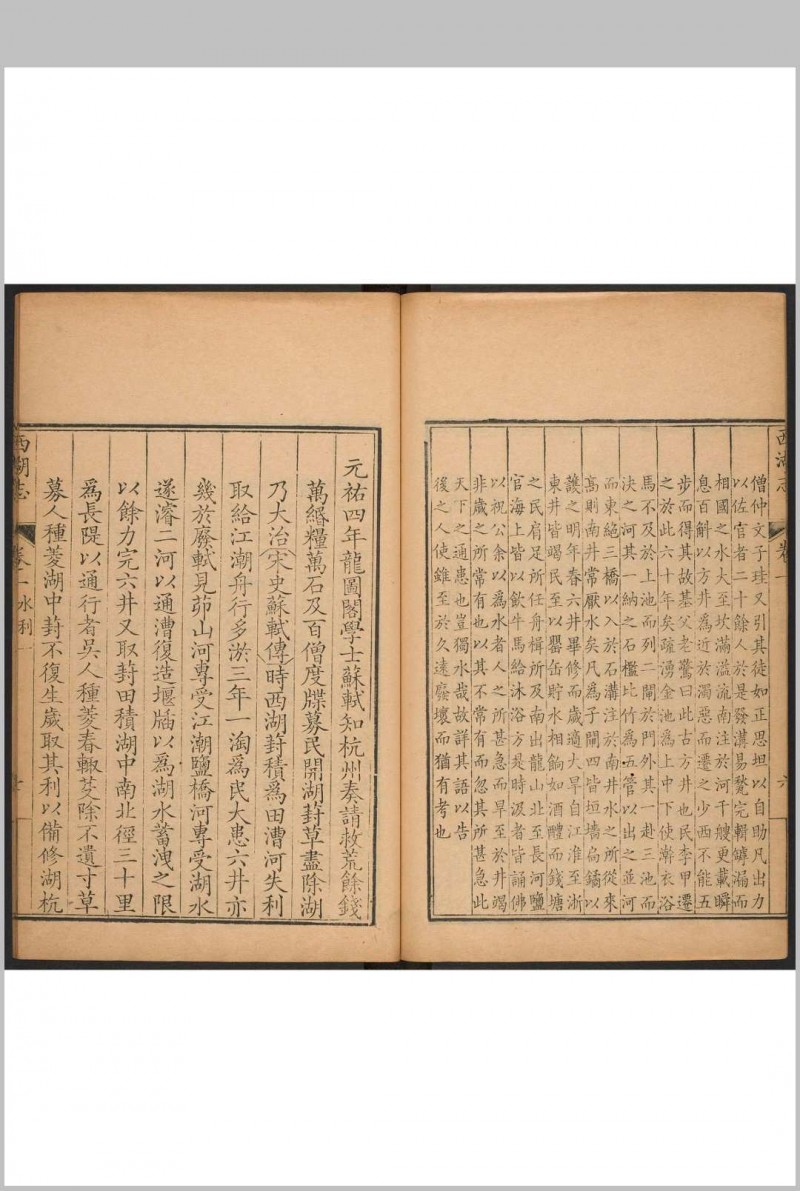 西湖志
卷一
六
僧仲文子珪又引其徒如正思坦以自助凡出力
以佐官者二十餘人於是發溝易甃完緝罅漏而
相國之水大至坎滿溢流南注於河千艘更載瞬
息百斛以方井爲近於濁惡而遷之少西不能五
步而得其故基父老驚曰此古方井也民李甲遷
之於此六十年矣疏湧金池爲上中下使澣衣浴
馬不及於上池而列二閘於門外其一赴三池而
決之河其一納之石檻比竹爲五管以出之並河
而東絕三橋以入於石溝注於南井水之所從來
高則南井常厭水矣凡爲子閘四皆垣墻扃鐍以
護之明年春六井畢修而歲適大旱自江淮至浙
東井皆竭民至以罌缶貯水相餉如酒醴而錢塘
之民肩足所任舟楫所及南出龍山北至長河鹽
官海上皆以飲牛馬給沐浴方是時汲者皆誦佛
以祝公余以爲水者人之所甚急而旱至於井竭
非歲之所常有也以其不常有而忽其所甚急此
天下之通患也豈獨水哉故詳其語以告
後之人使雖至於久遠廢壞而猶有考也
元祐四年龍圖閣學士蘇軾知杭州奏請救荒餘錢
萬緡糧萬石及百僧度牒募民開湖葑草盡除湖
乃大治宋史蘇軾傳時西湖葑積爲田漕河失利
取給江潮舟行多淤三年一淘爲民大患六井亦
幾於廢軾見茆山河專受江潮鹽橋河專受湖水
遂濬二河以通漕復造堰牐以爲湖水蓄洩之限
以餘力完六井又取葑田積湖中南北徑三十里
爲長隄以通行者吳人種菱春輒芟除不遺寸草
募人種菱湖中葑不復生歲取其利以備修湖杭
西湖志
卷一水利一